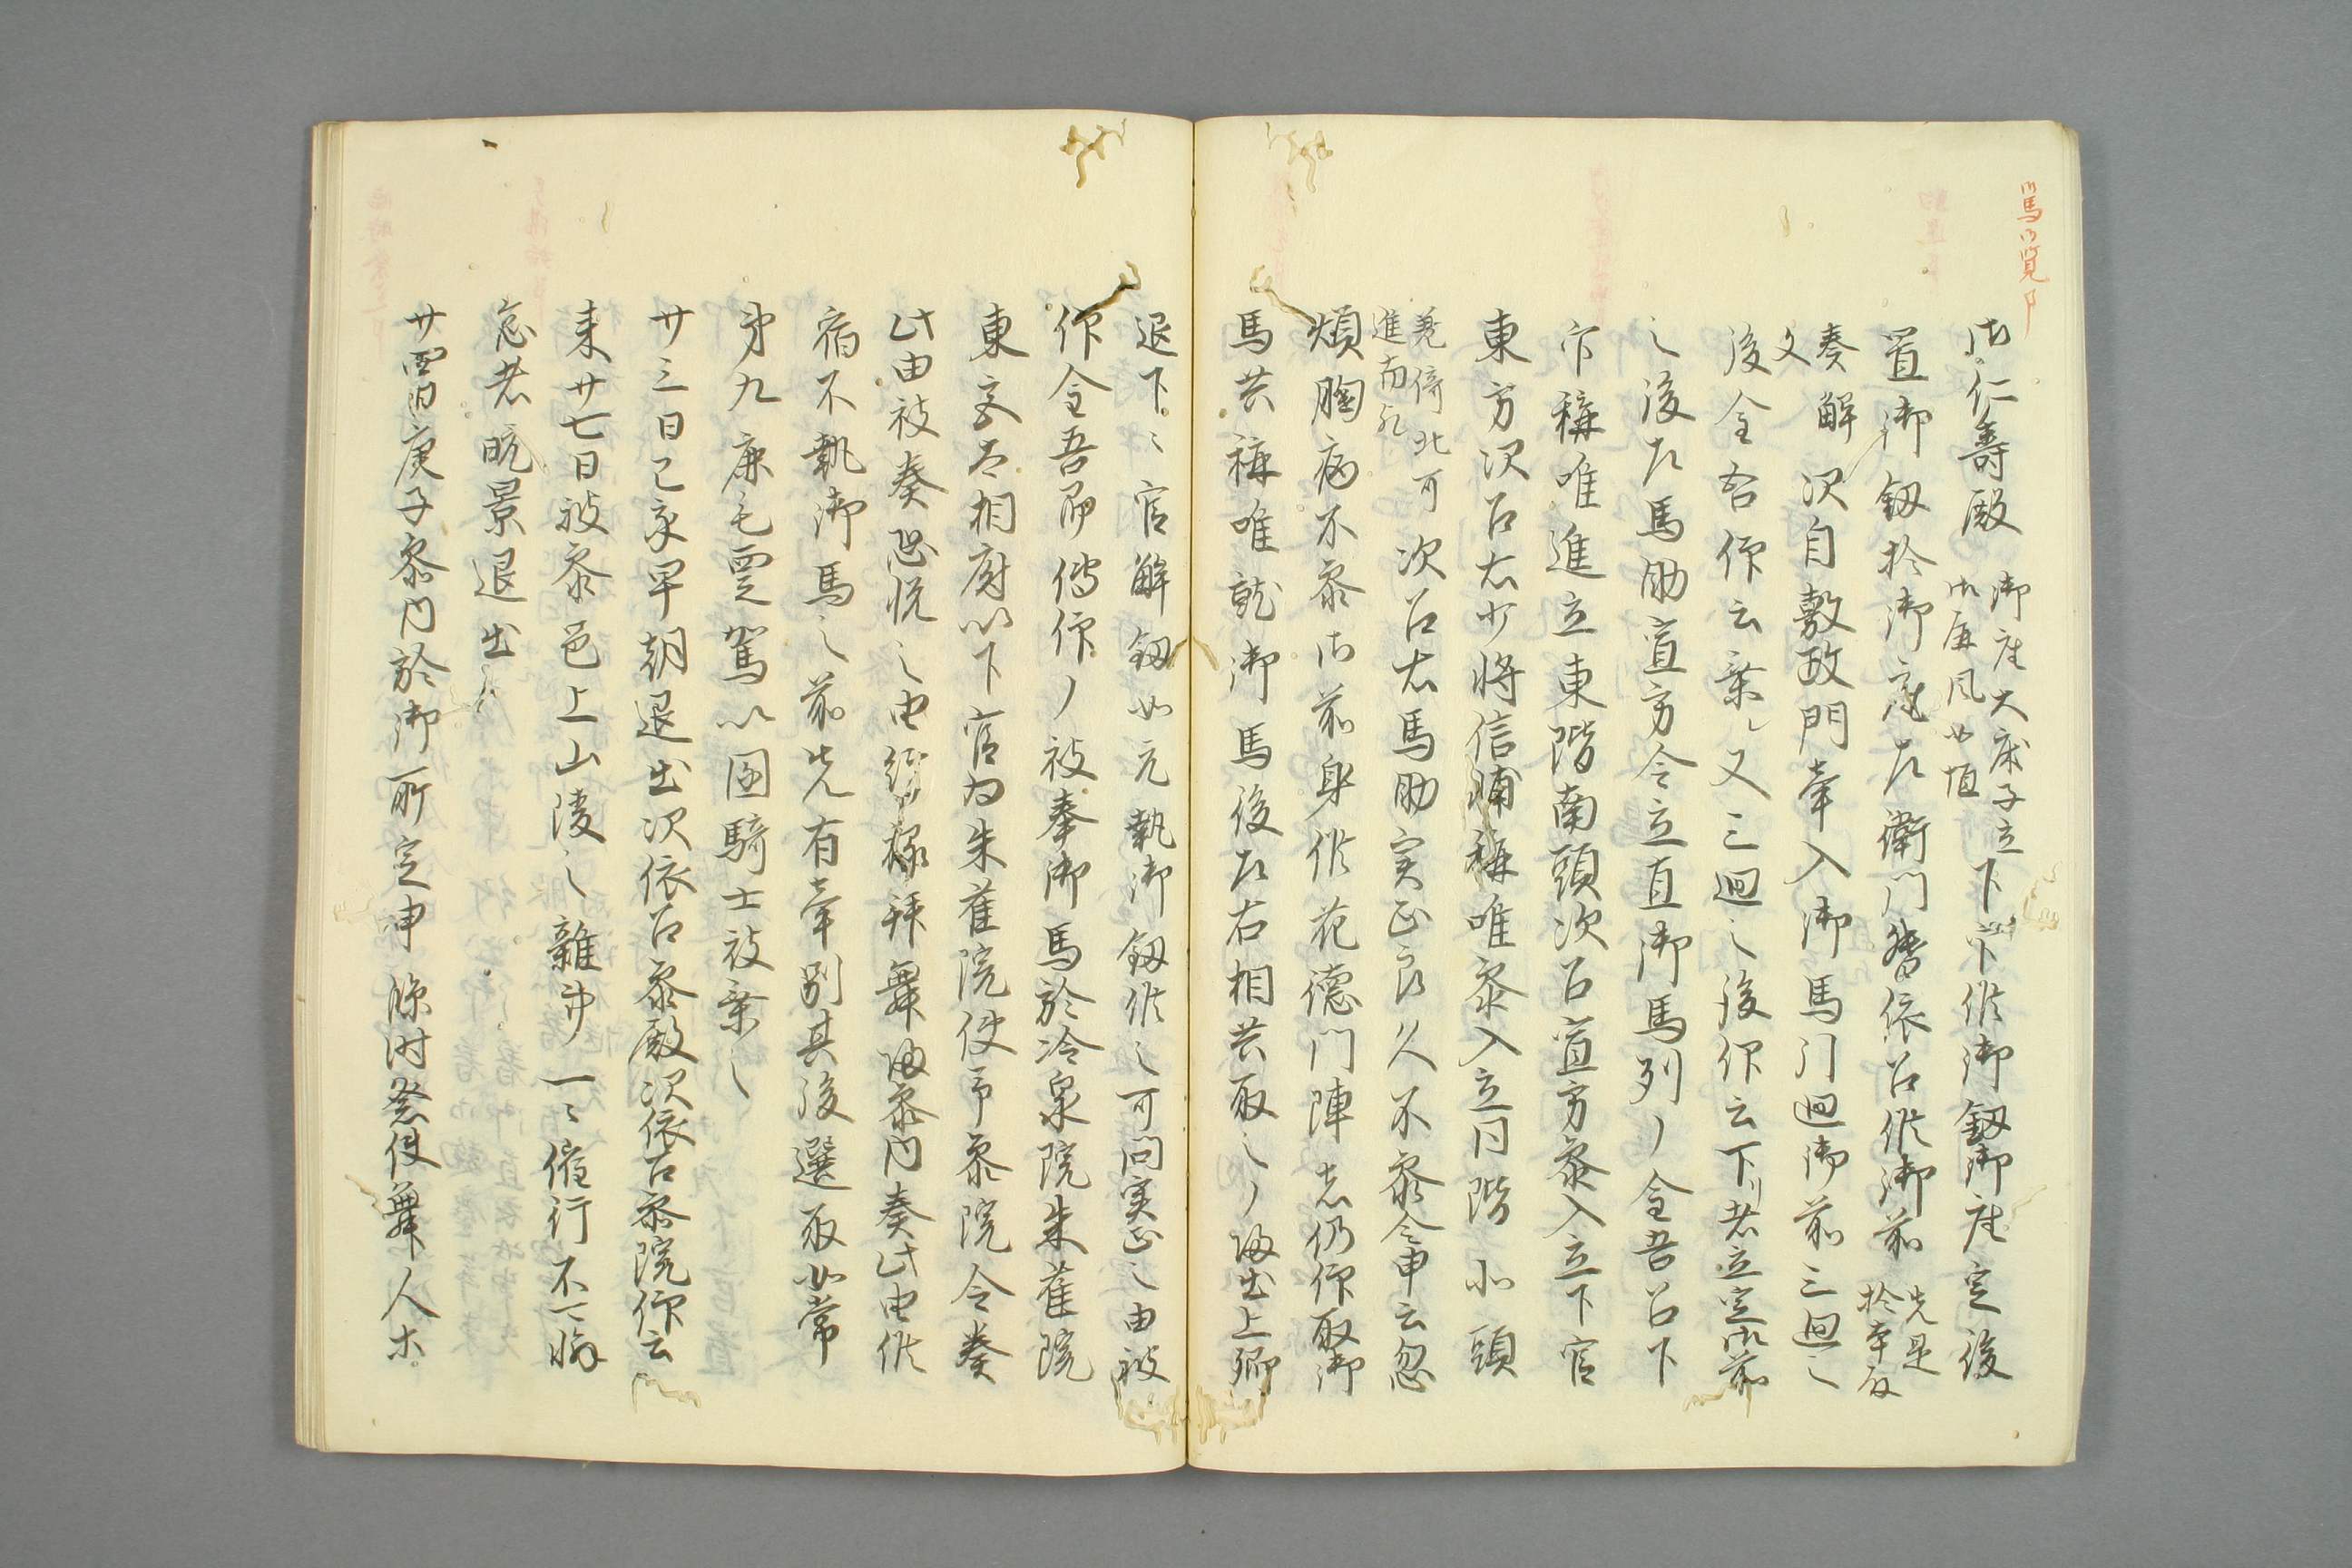 馬御覧事
御仁壽殿 御座大床子立 御屏風如恒 下下供御釼御座定後
置御釼於御座左衛門督依召供御前 先是於本殿
奏解文 次自敷政門牽入御馬門迴御前三迴之
後金吾仰云乗レ又三迴之後仰云下リ者立定御前
之後左馬助宣方令立直御馬列ノ金吾召下
官稱唯進立東階南頭次召宣方参入立下官
東方次召右少将信輔稱唯参入立同階北頭
兼倚北可進南歟 次召右馬助実正良久不参令申云忽
煩胸病不参御前身候花德門陣者仍仰取御
馬共稱唯就御馬後左右相共取之ノ帰出上卿
退下々官解釼如元執御釼供之可問実正之由被
仰金吾即傳仰ノ被奉御馬於冷泉院朱雀院
東宮太相府以下官為朱雀院使予参院令奏
此由被奏恐悦之由給禄拝舞帰参内奏此由候
宿不執御馬之前先有牽別其後選取如常
第九鹿毛 駕以 騎士被乗之
廿三日己亥早朝退出次依召参殿次依召参院仰云
来廿七日被参邑上山陵之雜事一々催行不可懈
怠者晩景退出々
廿四日庚子参内於御前定申臨時祭使舞人等